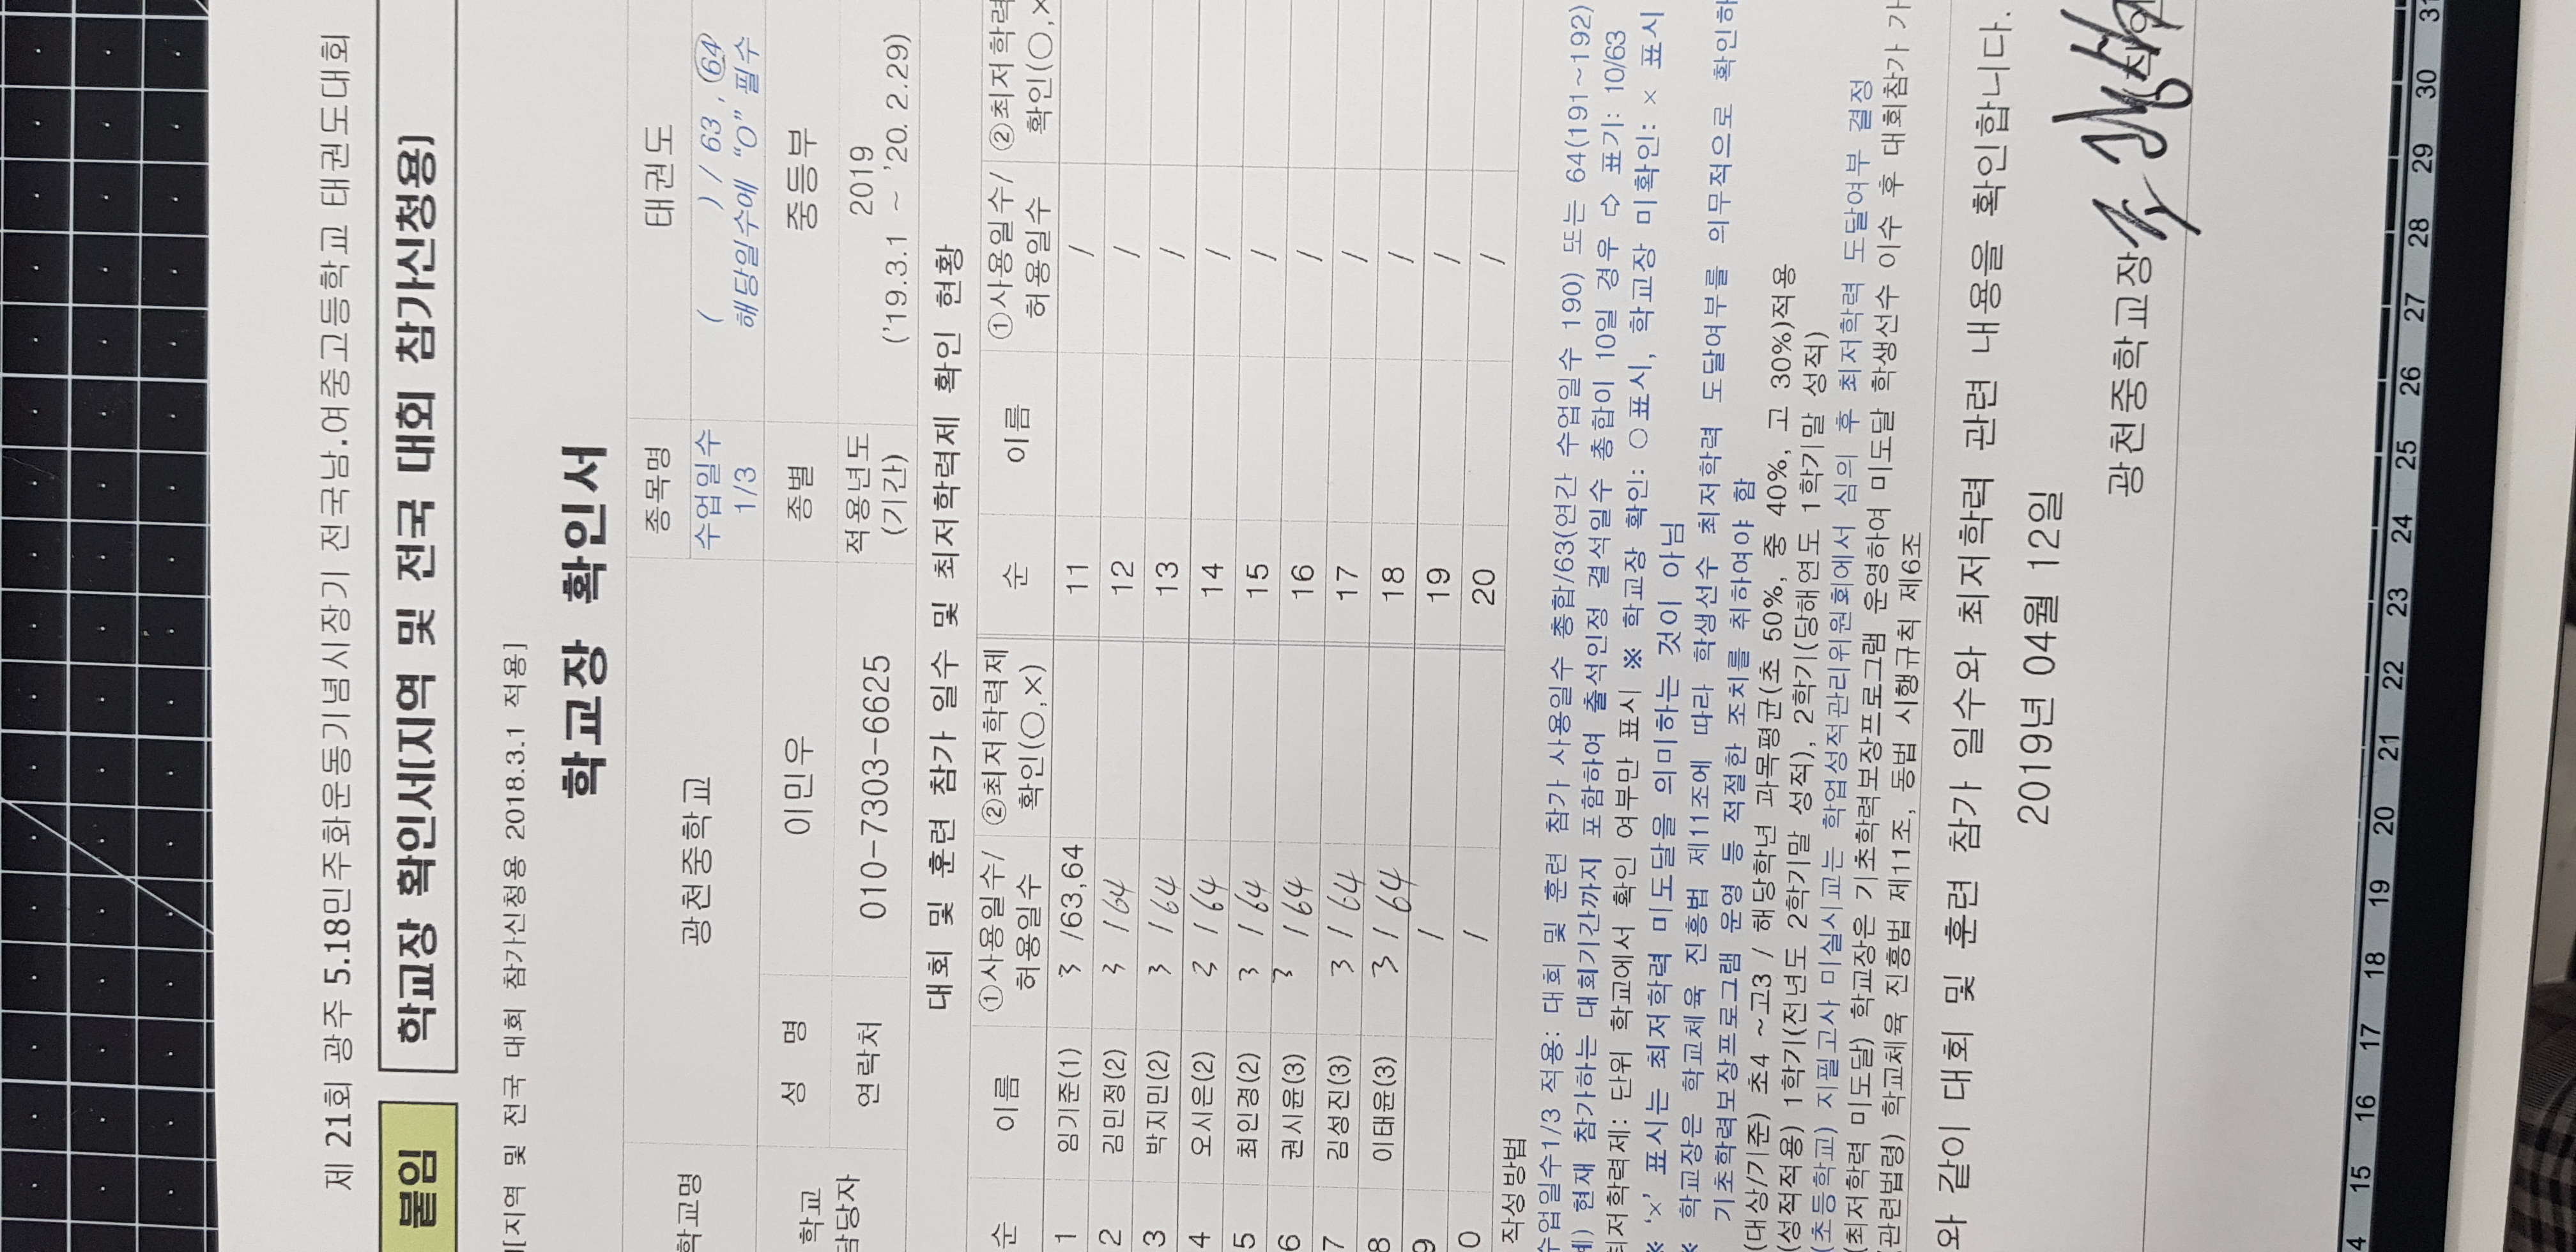 제 21회 광주 5.18민주화운동기념시장기 전국남.여중고등학교 태권도대회
붙임 학교장 확인서(지역 및 전국 대회 참가신청용)
[지역 및 전국 대회 참가신청용 2018.3.1 적용]
학교장 확인서
학교명 광천중학교 종목명 태권도
수업일수 1/3 ( ) / 63 , 64
해당일수에 “O” 필수
학교 담당자 성 명 이민우 종별 중등부
연락처 010-7303-6625 적용년도 (기간) 2019
('19.3.1 ~ '20. 2.29)
대회 및 훈련 참가 일수 및 최저학력제 확인 현황
순 이름 ①사용일수/ 허용일수 ②최저학력제 확인(○,×) 순 이름 ①사용일수/ 허용일수 ②최저학력 확인(○,×
1 임기준(1) 3 /63,64 11 /
2 김민정(2) 3 / 64 12 /
3 박지민(2) 3 / 64 13 /
4 오시은(2) 3 / 64 14 /
5 최인경(2) 3 / 64 15 /
6 권시윤(3) 3 / 64 16 /
7 김성진(3) 3 / 64 17 /
8 이태윤(3) 3 / 64 18 /
9 / 19 /
0 / 20 /
작성방법
수업일수1/3 적용: 대회 및 훈련 참가 사용일수 총합/63(연간 수업일수 190) 또는 64(191~192)
예) 현재 참가하는 대회기간까지 포함하여 출석인정 결석일수 총합이 10일 경우 ⇨ 표기: 10/63
최저학력제: 단위 학교에서 확인 여부만 표시 ※ 학교장 확인: ○표시, 학교장 미확인: × 표시
※ '×' 표시는 최저학력 미도달을 의미하는 것이 아님
※ 학교장은 학교체육 진흥법 제11조에 따라 학생선수 최저학력 도달여부를 의무적으로 확인하
기초학력보장프로그램 운영 등 적절한 조치를 취하여야 함
(대상/기준) 초4 ~고3 / 해당학년 과목평균(초 50%, 중 40%, 고 30%)적용
(성적적용) 1학기(전년도 2학기말 성적), 2학기(당해연도 1학기말 성적)
(초등학교) 지필고사 미실시교는 학업성적관리위원회에서 심의 후 최저학력 도달여부 결정
(최저학력 미도달) 학교장은 기초학력보장프로그램 운영하여 미도달 학생선수 이수 후 대회참가 가
(관련법령) 학교체육 진흥법 제11조, 동법 시행규칙 제6조
와 같이 대회 및 훈련 참가 일수와 최저학력 관련 내용을 확인합니다.
2019년 04월 12일
광천중학교장
4 15 16 17 18 19 20 21 22 23 24 25 26 27 28 29 30 31